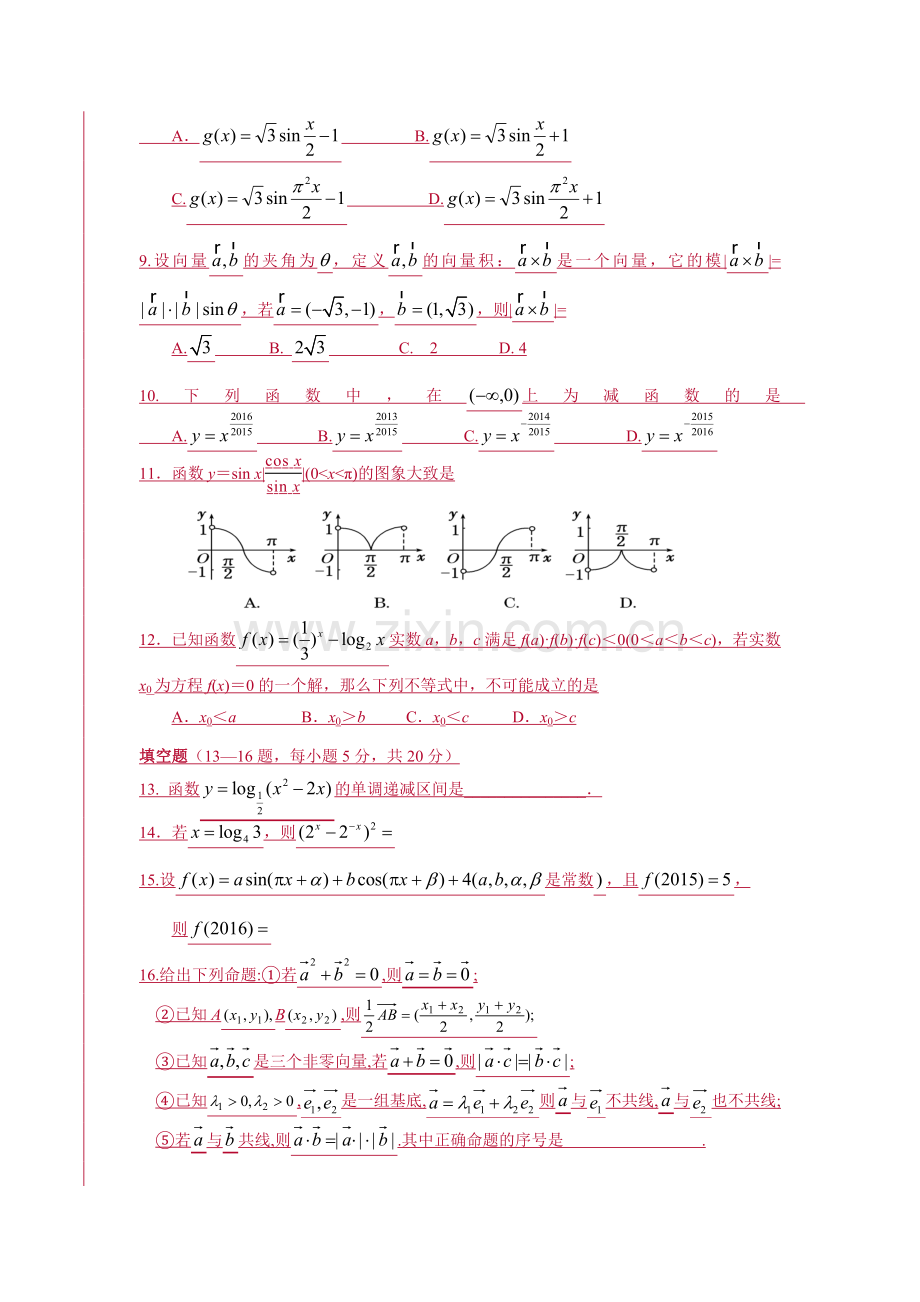 A. g(x)=√3 sin x/2 −1 B. g(x)=√3 sin x/2 +1
C. g(x)=√3 sin π²x/2 −1 D. g(x)=√3 sin π²x/2 +1
9.设向量a,b的夹角为θ，定义a,b的向量积：a×b是一个向量，它的模|a×b|=
|a|·|b|sinθ，若a=(−√3,−1)，b=(1,√3)，则|a×b|=
A.√3 B. 2√3 C. 2 D. 4
10. 下列函数中，在(−∞,0)上为减函数的是
A. y=x^(2016/2015) B. y=x^(2013/2015) C. y=x^(−2014/2015) D. y=x^(−2015/2016)
11．函数y＝sin x|cos x/sin x|(0<x<π)的图象大致是
y 1 O −1 π/2 π x y 1 O π/2 π x y 1 O −1 π/2 π x y 1 O −1 π/2 π x
A. B. C. D.
www.zixin.com.cn
12．已知函数f(x)=(1/3)^x−log₂x实数a，b，c满足f(a)·f(b)·f(c)＜0(0＜a＜b＜c)，若实数
x₀为方程f(x)＝0的一个解，那么下列不等式中，不可能成立的是
A．x₀＜a B．x₀＞b C．x₀＜c D．x₀＞c
填空题（13—16题，每小题5分，共20分）
13. 函数y=log_(1/2)(x²−2x)的单调递减区间是________________．
14．若x=log₄3，则(2^x−2^(−x))²=
15.设f(x)=asin(πx+α)+bcos(πx+β)+4(a,b,α,β是常数)，且f(2015)=5，
则f(2016)=
16.给出下列命题:①若a⃗²+b⃗²=0,则a⃗=b⃗=0⃗;
②已知A(x₁,y₁),B(x₂,y₂),则1/2 AB⃗=((x₁+x₂)/2,(y₁+y₂)/2);
③已知a⃗,b⃗,c⃗是三个非零向量,若a⃗+b⃗=0⃗,则|a⃗·c⃗|=|b⃗·c⃗|;
④已知λ₁>0,λ₂>0,e₁⃗,e₂⃗是一组基底,a⃗=λ₁e₁⃗+λ₂e₂⃗则a⃗与e₁⃗不共线,a⃗与e₂⃗也不共线;
⑤若a⃗与b⃗共线,则a⃗·b⃗=|a⃗|·|b⃗|.其中正确命题的序号是________________.